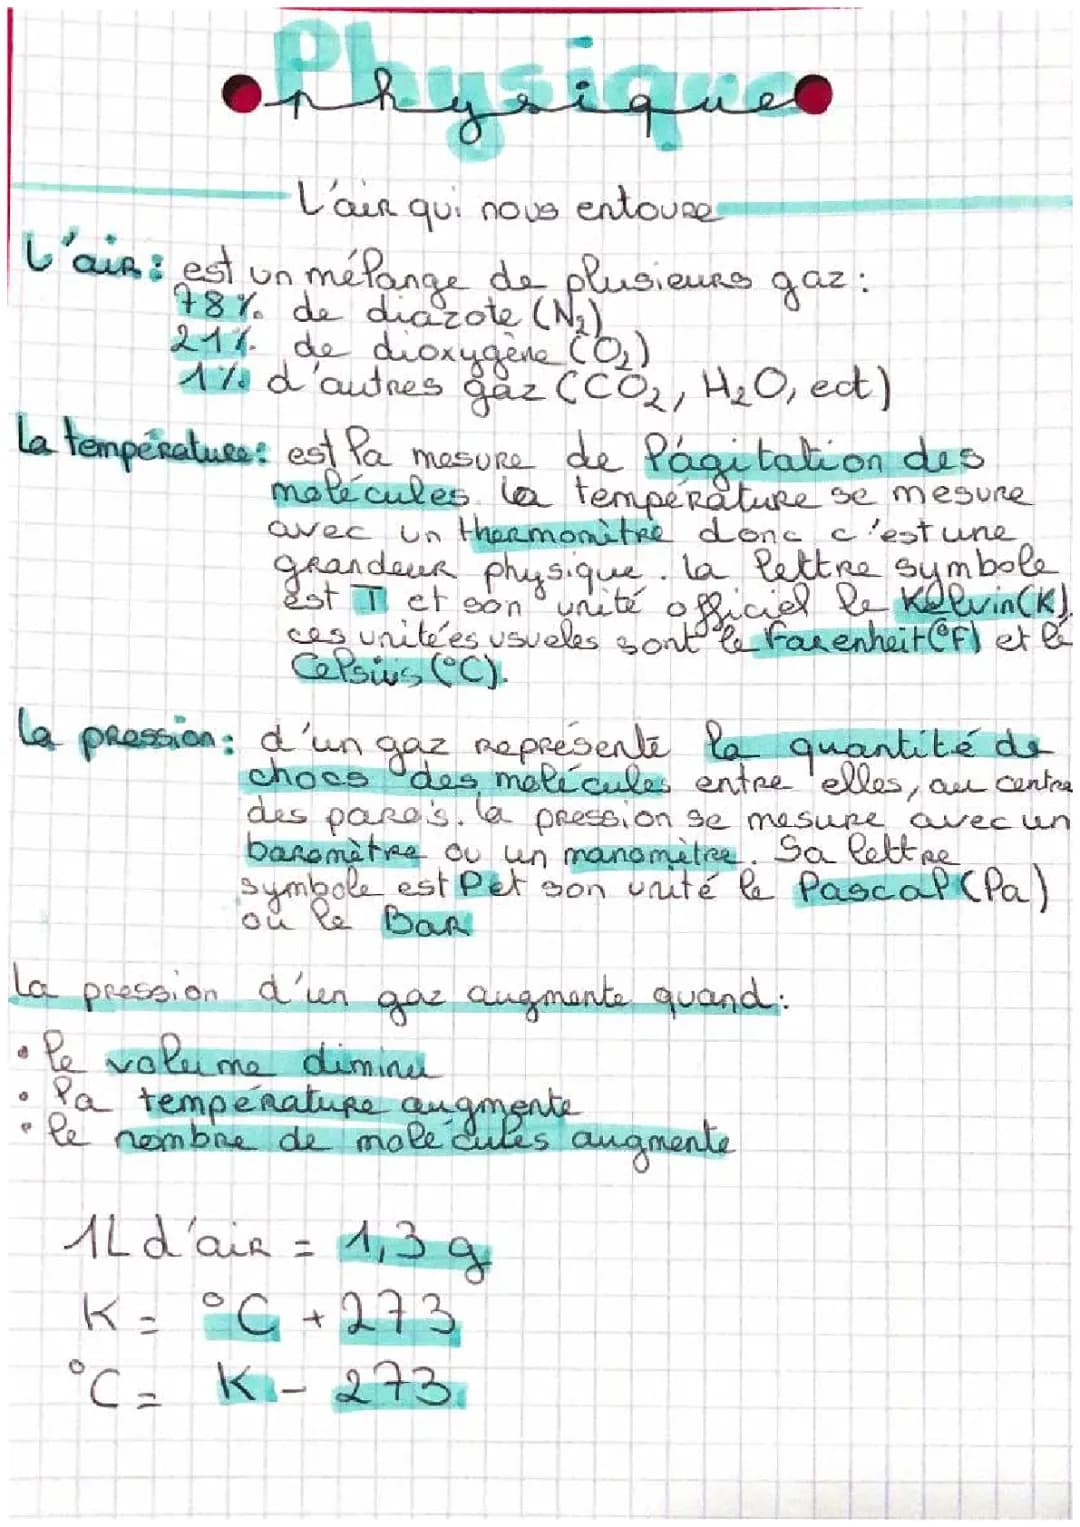 Physique
physique
L'air qui nous entoure
L'air : est un mélange de plusieurs gaz :
78% de diazote (N₂)
21% de dioxygène (O₂)
1% d'autres gaz (CO₂, H₂O, ect)
La température : est la mesure de l'agitation des
molécules. la température se mesure
avec un thermomètre donc c'est une
grandeur physique. la lettre symbole
est T et son unité officiel le Kelvin (K).
ces unitées usueles sont le Farenheit (°F) et le
Celsius (°C).
La pression : d'un gaz représente la quantité de
chocs des molécules entre elles, au centre
des parois. la pression se mesure avec un
baromètre ou un manomètre. Sa lettre
symbole est P et son unité le Pascal (Pa)
ou le Bar
La pression d'un gaz augmente quand :
• le volume diminu
• la température augmente
• le nombre de molécules augmente
1L d'air = 1,3 g
K = °C + 273
°C = K - 273